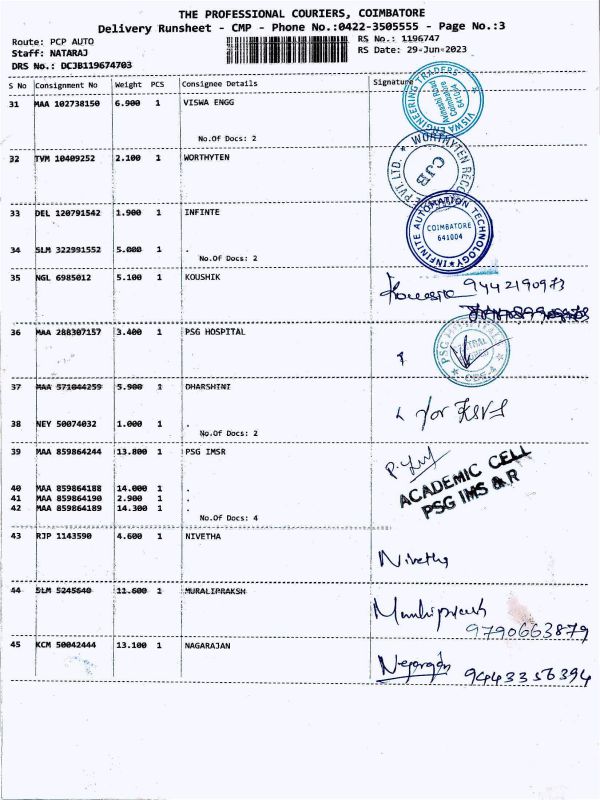 THE PROFESSIONAL COURIERS, COIMBATORE
Delivery Runsheet - CMP - Phone No.:0422-3505555 - Page No.:3
Route: PCP AUTO
RS No.: 1196747
Staff: NATARAJ
RS Date: 29-Jun-2023
DRS No.: DCJB119674703
S No Consignment No Weight PCS Consignee Details Signature
31 MAA 102738150 6.900 1 VISWA ENGG
VISWA ENGINEERING TRADERS
Avinashi Road
Coimbatore
641004
No.Of Docs: 2
32 TVM 10409252 2.100 1 WORTHYTEN
WORTHYTEN
PVT LTD.
CJB
33 DEL 120791542 1.900 1 INFINTE
INFINITE AUTOMATION TECHNOLOGY
COIMBATORE
641004
34 SLM 322991552 5.000 1 .
No.Of Docs: 2
35 NGL 6985012 5.100 1 KOUSHIK
9442190973
36 MAA 288307157 3.400 1 PSG HOSPITAL
PSG HOSPITALS
37 MAA 571044259 5.900 1 DHARSHINI
for
38 NEY 50074032 1.000 1 .
No.Of Docs: 2
39 MAA 859864244 13.800 1 PSG IMSR
ACADEMIC CELL
PSG IMS & R
40 MAA 859864188 14.000 1 .
41 MAA 859864190 2.900 1 .
42 MAA 859864189 14.300 1 .
No.Of Docs: 4
43 RJP 1143590 4.600 1 NIVETHA
Nivetha
44 SLM 5245640 11.600 1 MURALIPRAKSH
9790663879
45 KCM 50042444 13.100 1 NAGARAJAN
Nagarajan 9443356394